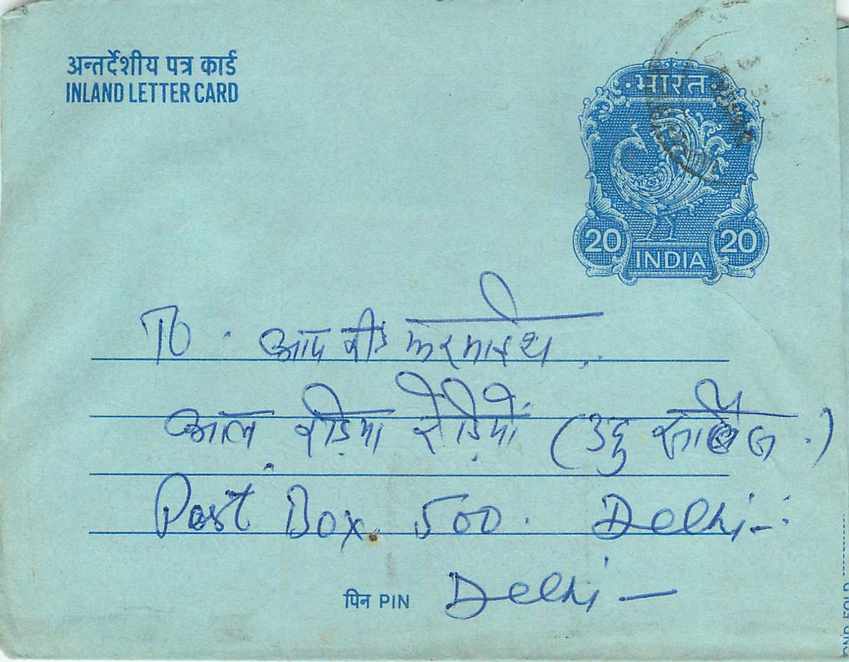 अन्तर्देशीय पत्र कार्ड
INLAND LETTER CARD
भारत
20 20
INDIA
To. आप की फरमाइश
आल इंडिया रेडियो (उर्दु सर्विस.)
Post Box. 500. Delhi-
पिन PIN Delhi-